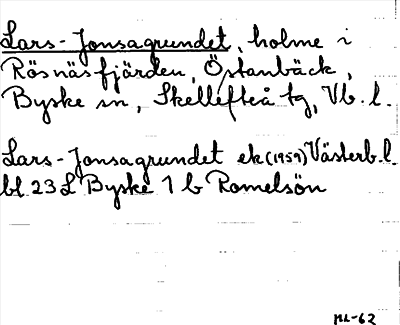 Lars-Jonsagrundet, holme i
Rösnäsfjärden, Östanbäck,
Byske sn, Skellefteå tg, Vb. l.
Lars-Jonsagrundet ek (1959) Västerb. l.
bl 23 L Byske 1 b Romelsön
ML-62